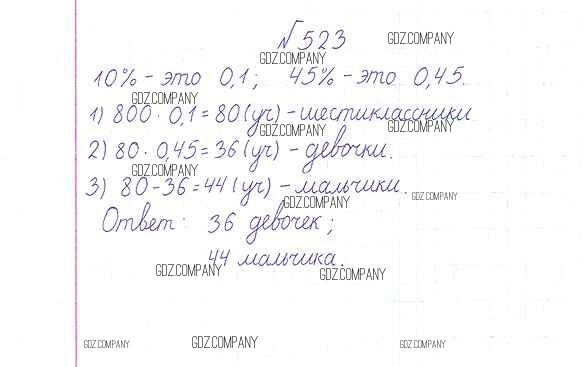 №523
GDZ.COMPANY
GDZ.COMPANY
10% - это 0,1; 45% - это 0,45.
GDZ.COMPANY
1) 800 · 0,1 = 80 (уч) - шестиклассники
GDZ.COMPANY GDZ.COMPANY
2) 80 · 0,45 = 36 (уч) - девочки.
GDZ.COMPANY
3) 80 - 36 = 44 (уч) - мальчики.
GDZ.COMPANY GDZ.COMPANY
Ответ: 36 девочек;
44 мальчика.
GDZ.COMPANY GDZ.COMPANY
GDZ.COMPANY GDZ.COMPANY GDZ.COMPANY